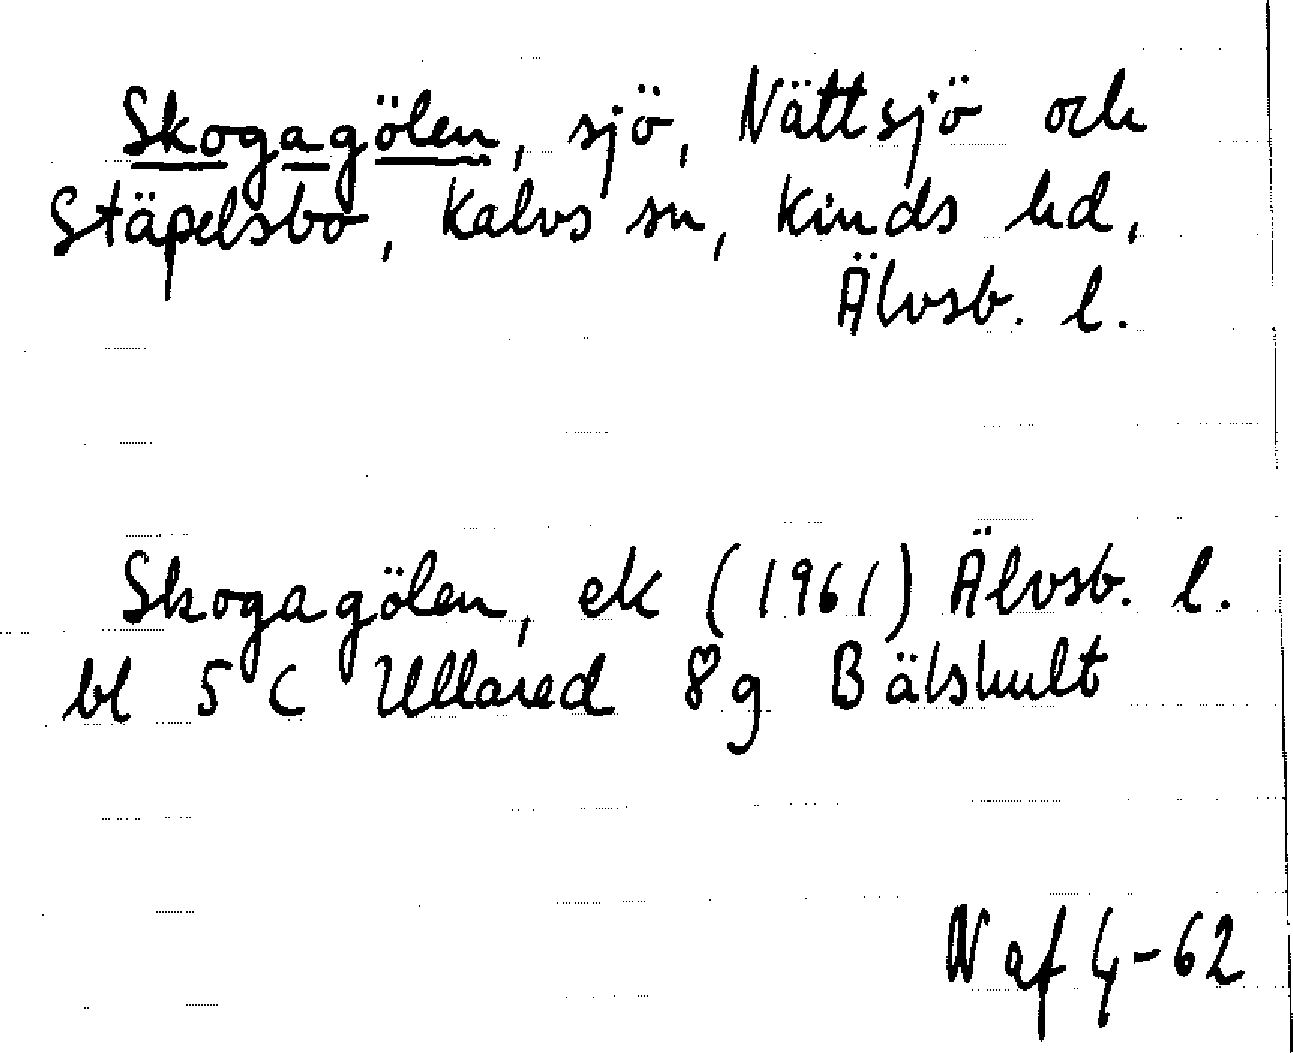 Skogagölen, sjö, Nättsjö och
Stäpelsbo, Kalvs sn, Kinds hd,
Älvsb. l.
Skogagölen, ek (1961) Älvsb. l.
bl 5 C Ullared 8g Bälshult
Naf 4-62